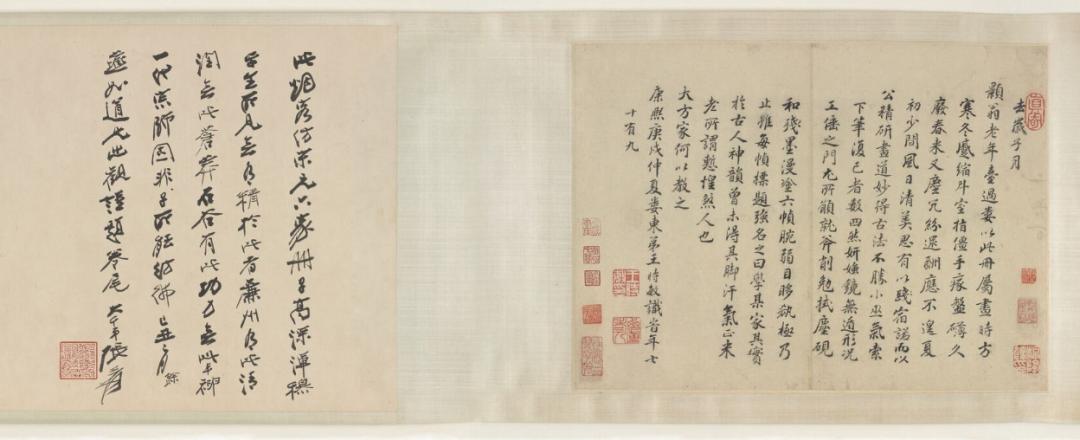 去歲子月
顥翁老年臺過婁以此冊屬畫時方
寒冬蹙縮斗室指僵手瘃盤礴久
廢春來又塵冗紛遝酬應不遑夏
初少間風日清美思有以踐宿諾而以
公精研畫道妙得古法不勝小巫氣索
下筆復已者數四然妍媸鏡無遁形況
工倕之門尤所願就斧削勉拭塵硯
和殘墨漫塗六幀腕弱目眵欿極乃
止雖每幀摽題強名之曰學某家其實
於古人神韻曾未得其脚汗氣正米
老所謂慙惶煞人也
大方家何以教之
康熙庚戌仲夏婁東弟王時敏識峕年七
十有九
此烟客仿宋元六家冊子高深渾穆
平生所見無有精於此者廉州有此清
潤無此蒼莽石谷有此功力無此
一代宗師固非予所能仿彿己丑
道此觀謹題卷尾 大千張爰